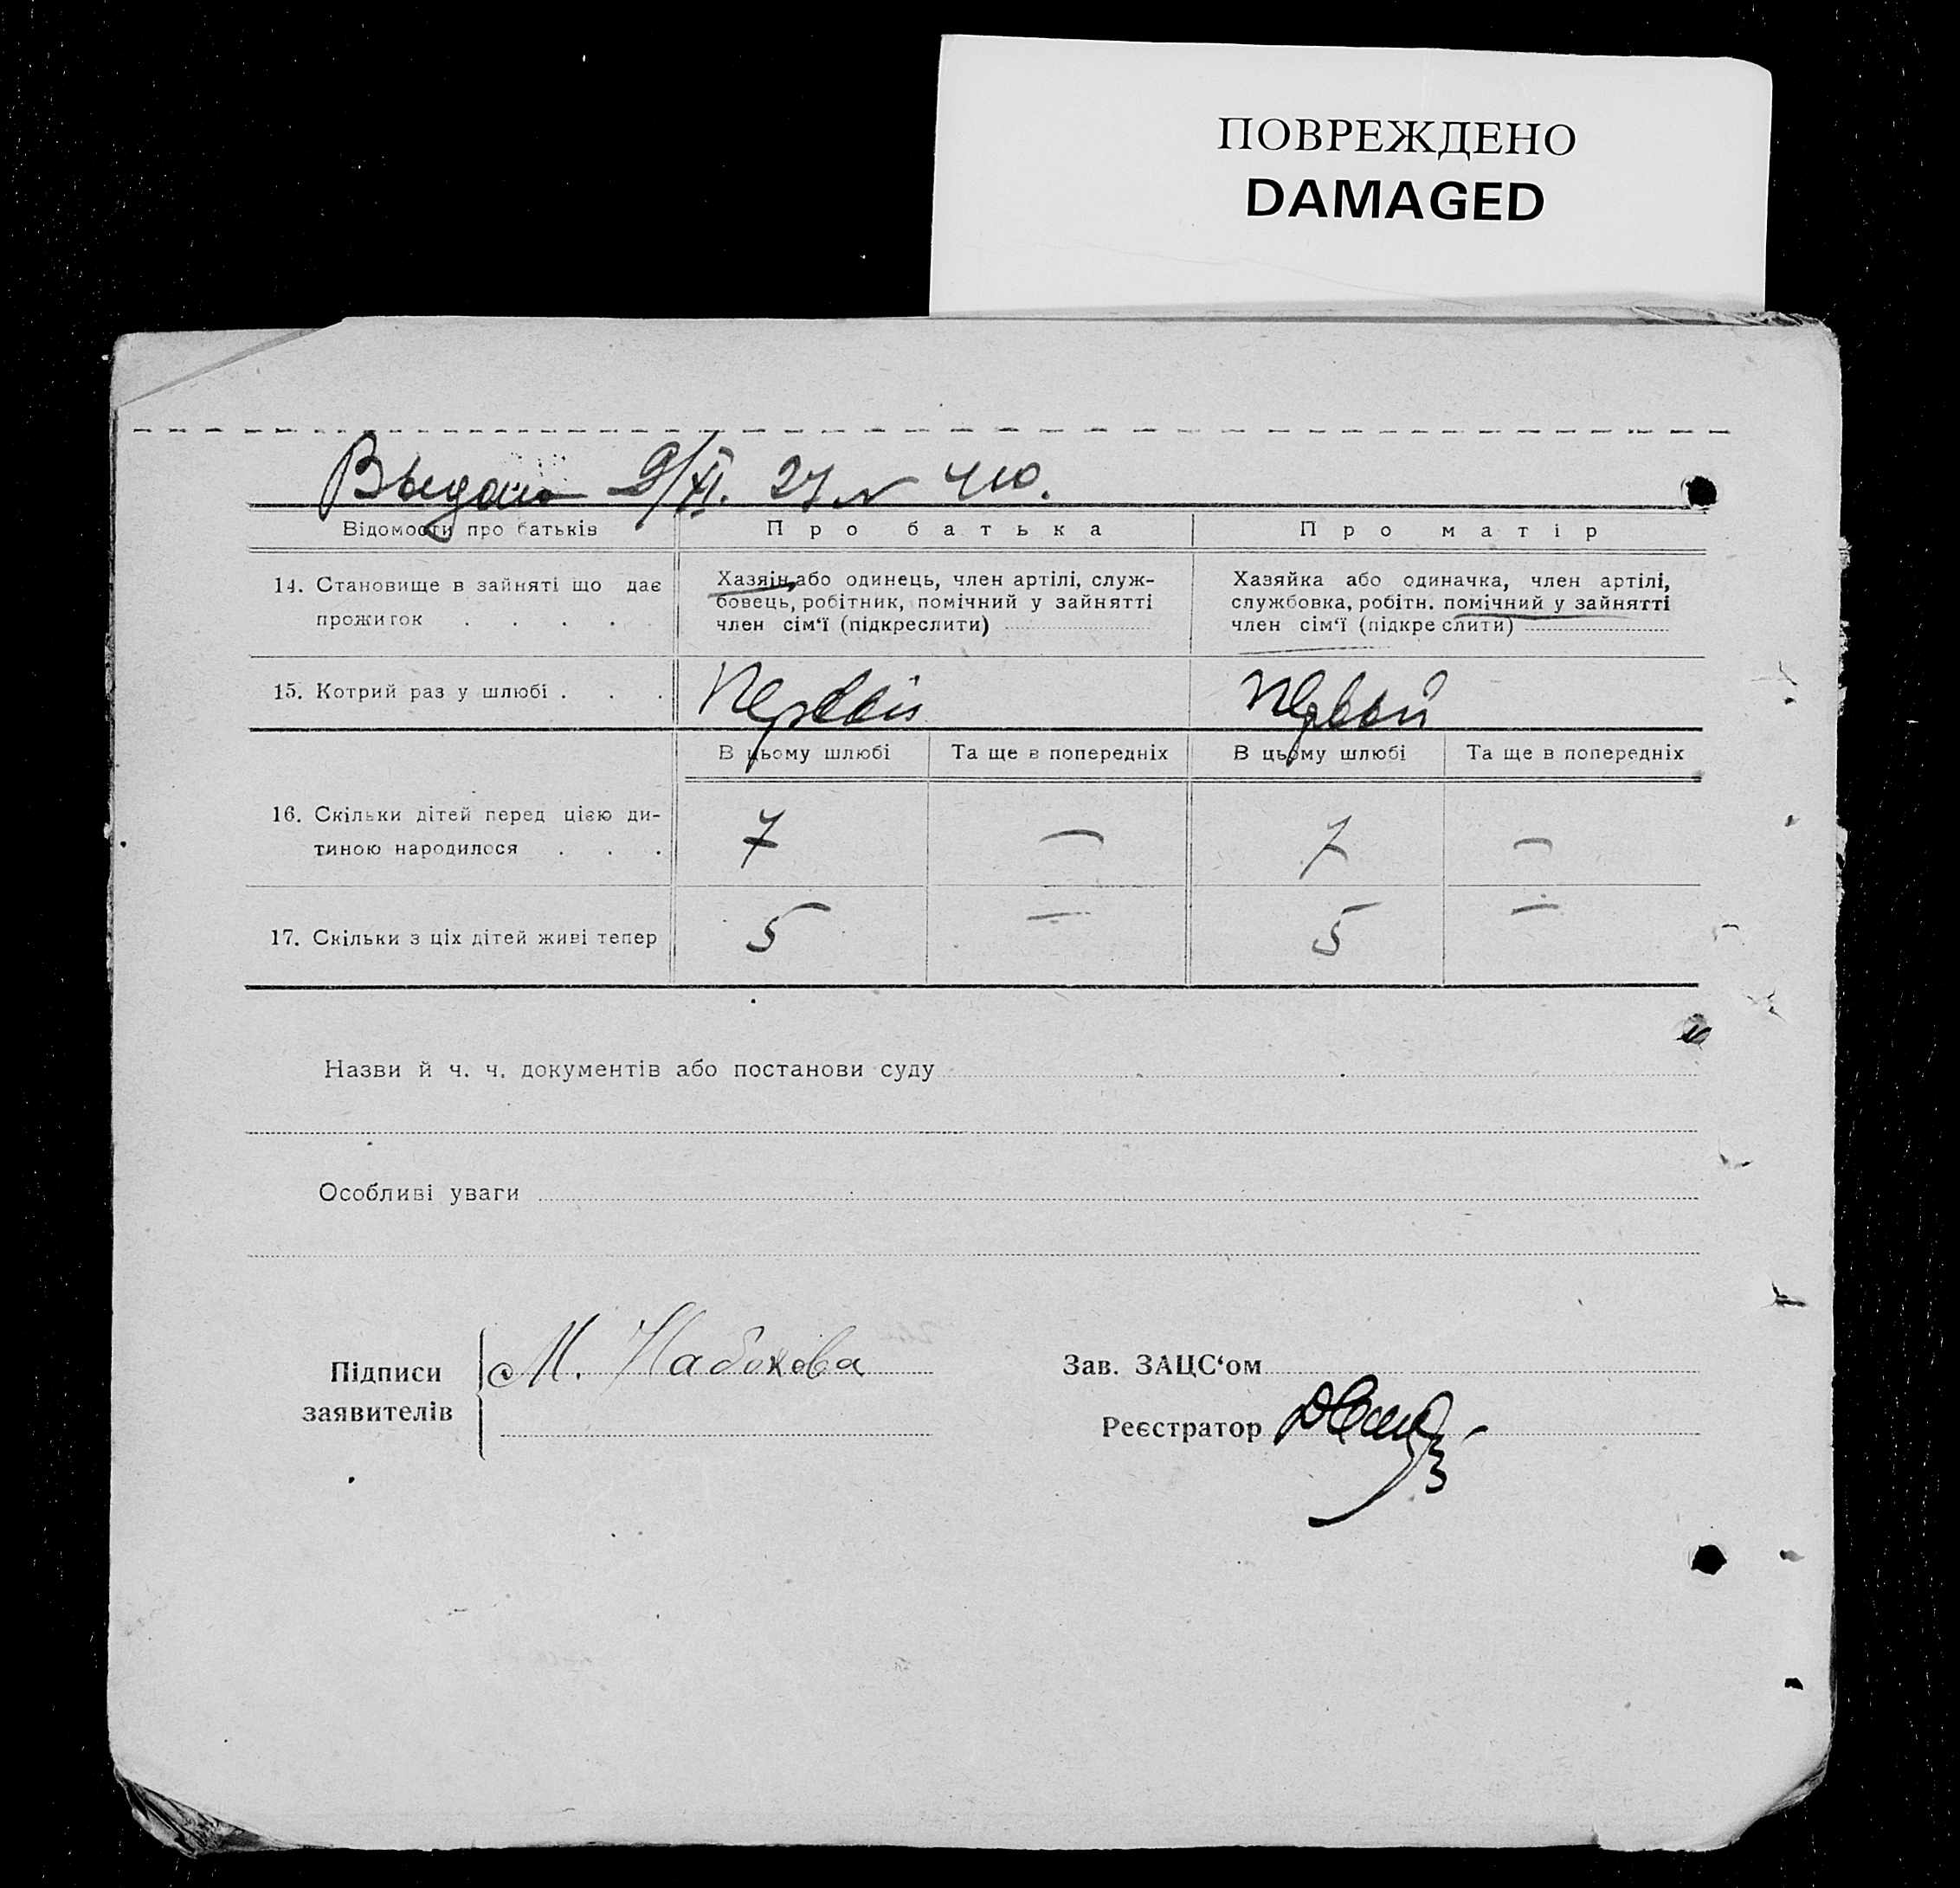 ПОВРЕЖДЕНО
DAMAGED
Выдано 9/XI. 27 № 410.
Відомости про батьків Про батька Про матір
14. Становище в зайняті що дає прожиток . . . . .
Хазяін або одинець, член артілі, служ-
бовець, робітник, помічний у зайнятті
член сім'ї (підкреслити)
Хазяйка або одиначка, член артілі,
службовка, робітн. помічний у зайнятті
член сім'ї (підкреслити)
15. Котрий раз у шлюбі . . . Первый Первый
В цьому шлюбі Та ще в попередніх В цьому шлюбі Та ще в попередніх
16. Скільки дітей перед цією ди-
тиною народилося . . . 7 — 7 —
17. Скільки з ціх дітей живі тепер 5 — 5 —
Назви й ч. ч. документів або постанови суду
Особливі уваги
Підписи
заявителів
М. Набокова
Зав. ЗАЦС'ом
Реєстратор